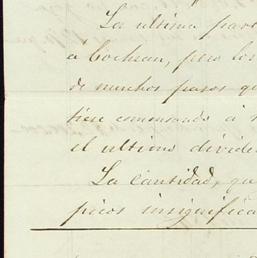 La ultima part
a Cochran, pero los
de muchos pasos qu
tiene comensado á
el ultimo divide
La Cantidad, qu
picos insignifica